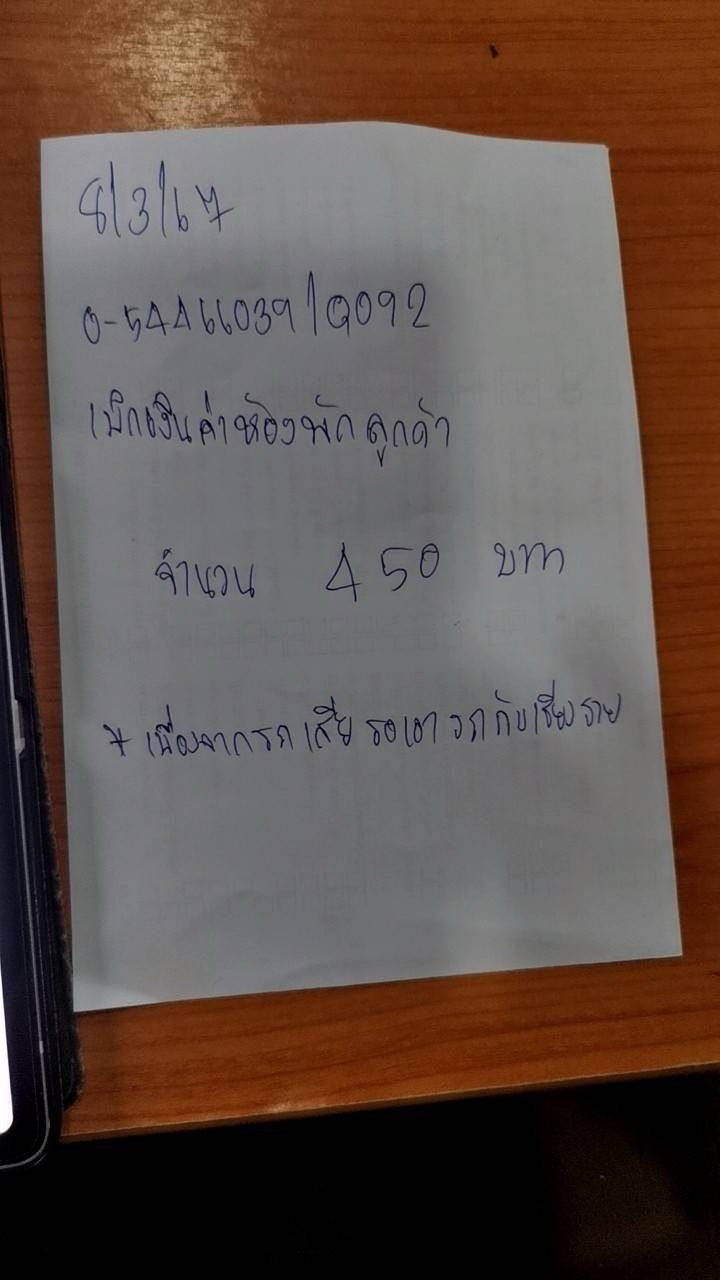 8/3/67
0-54466039/Q092
เบิกเงินค่าห้องพักลูกค้า
จำนวน 450 บาท
* เนื่องจากรถเสีย รอเอารถกลับเชียงราย